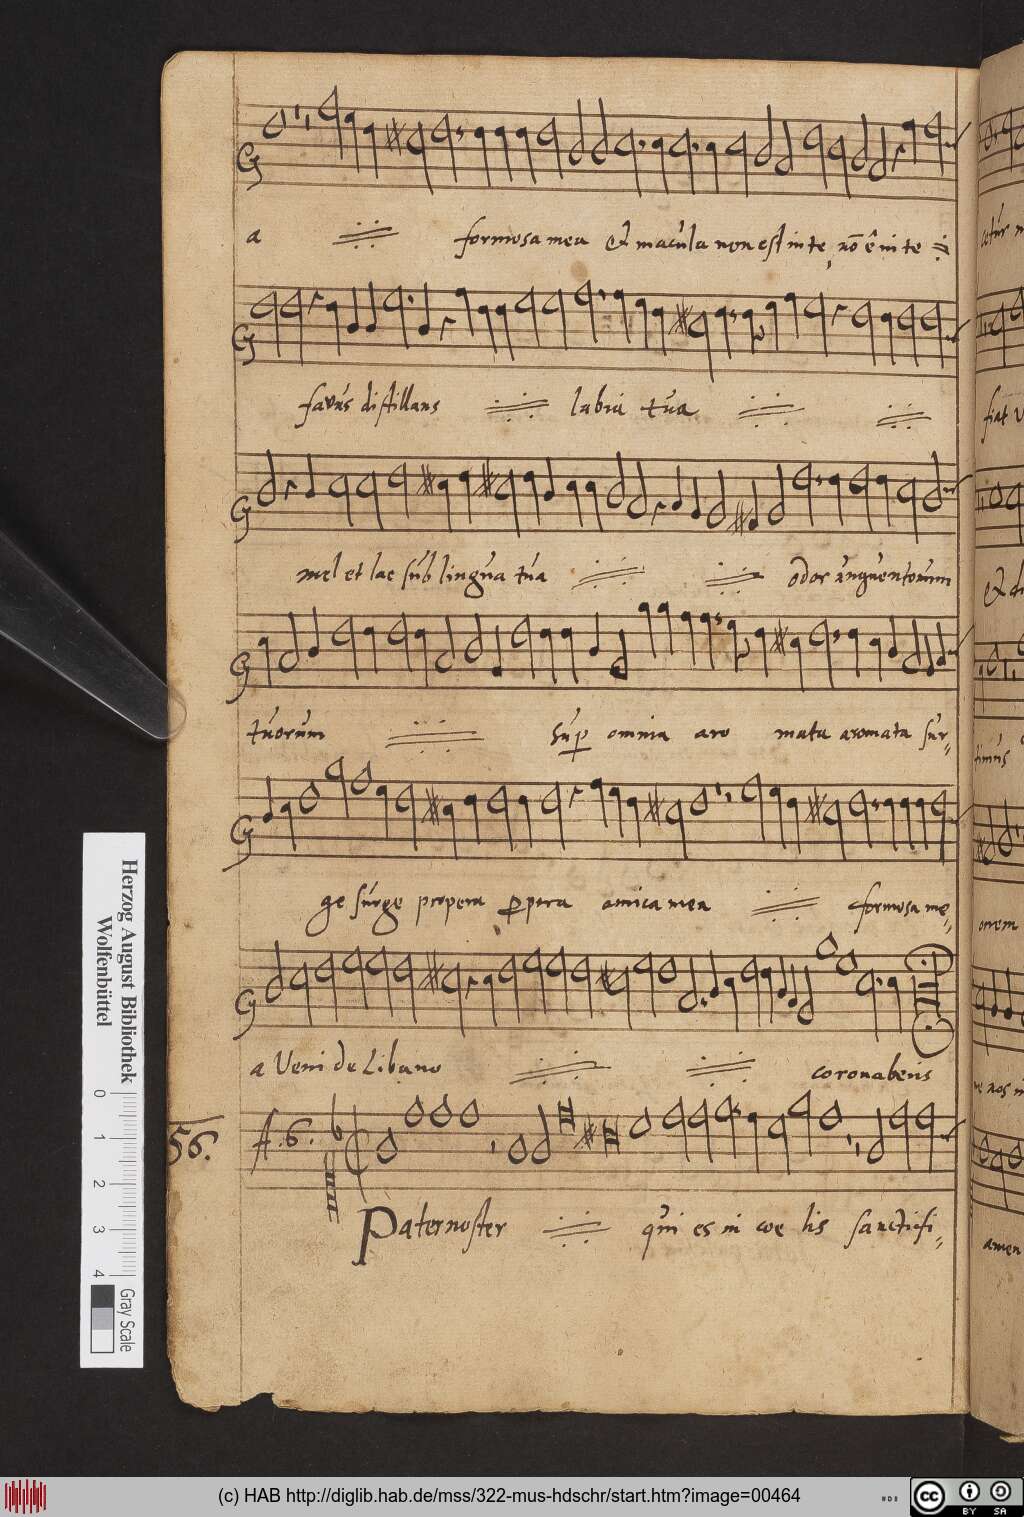 a formosa mea & macula non est in te, nō ē in te
favus distillans labia tua
mel et lac sub lingua tua odor unguentorum
tuorum sup omnia aro mata aromata sur-
ge surge propera ppera amica mea formosa me-
a Veni de Libano coronaberis
56. A.6.
Pater noster qui es in coe lis sanctifi-
Herzog August Bibliothek
Wolfenbüttel
0 1 2 3 4
Gray Scale
fiat
& di
amen
(c) HAB http://diglib.hab.de/mss/322-mus-hdschr/start.htm?image=00464
HAB
cc BY SA